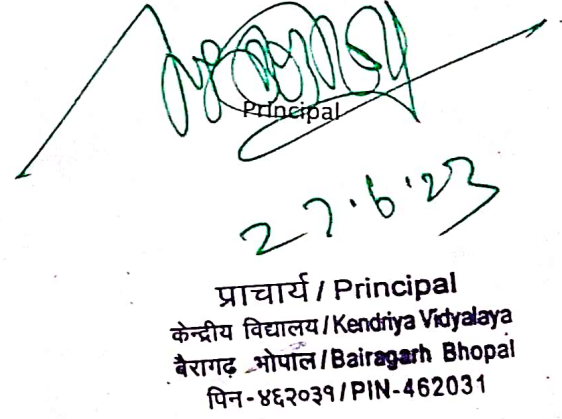 Principal
27.6.23
प्राचार्य / Principal
केन्द्रीय विद्यालय / Kendriya Vidyalaya
बैरागढ़ भोपाल / Bairagarh Bhopal
पिन-४६२०३१ / PIN-462031